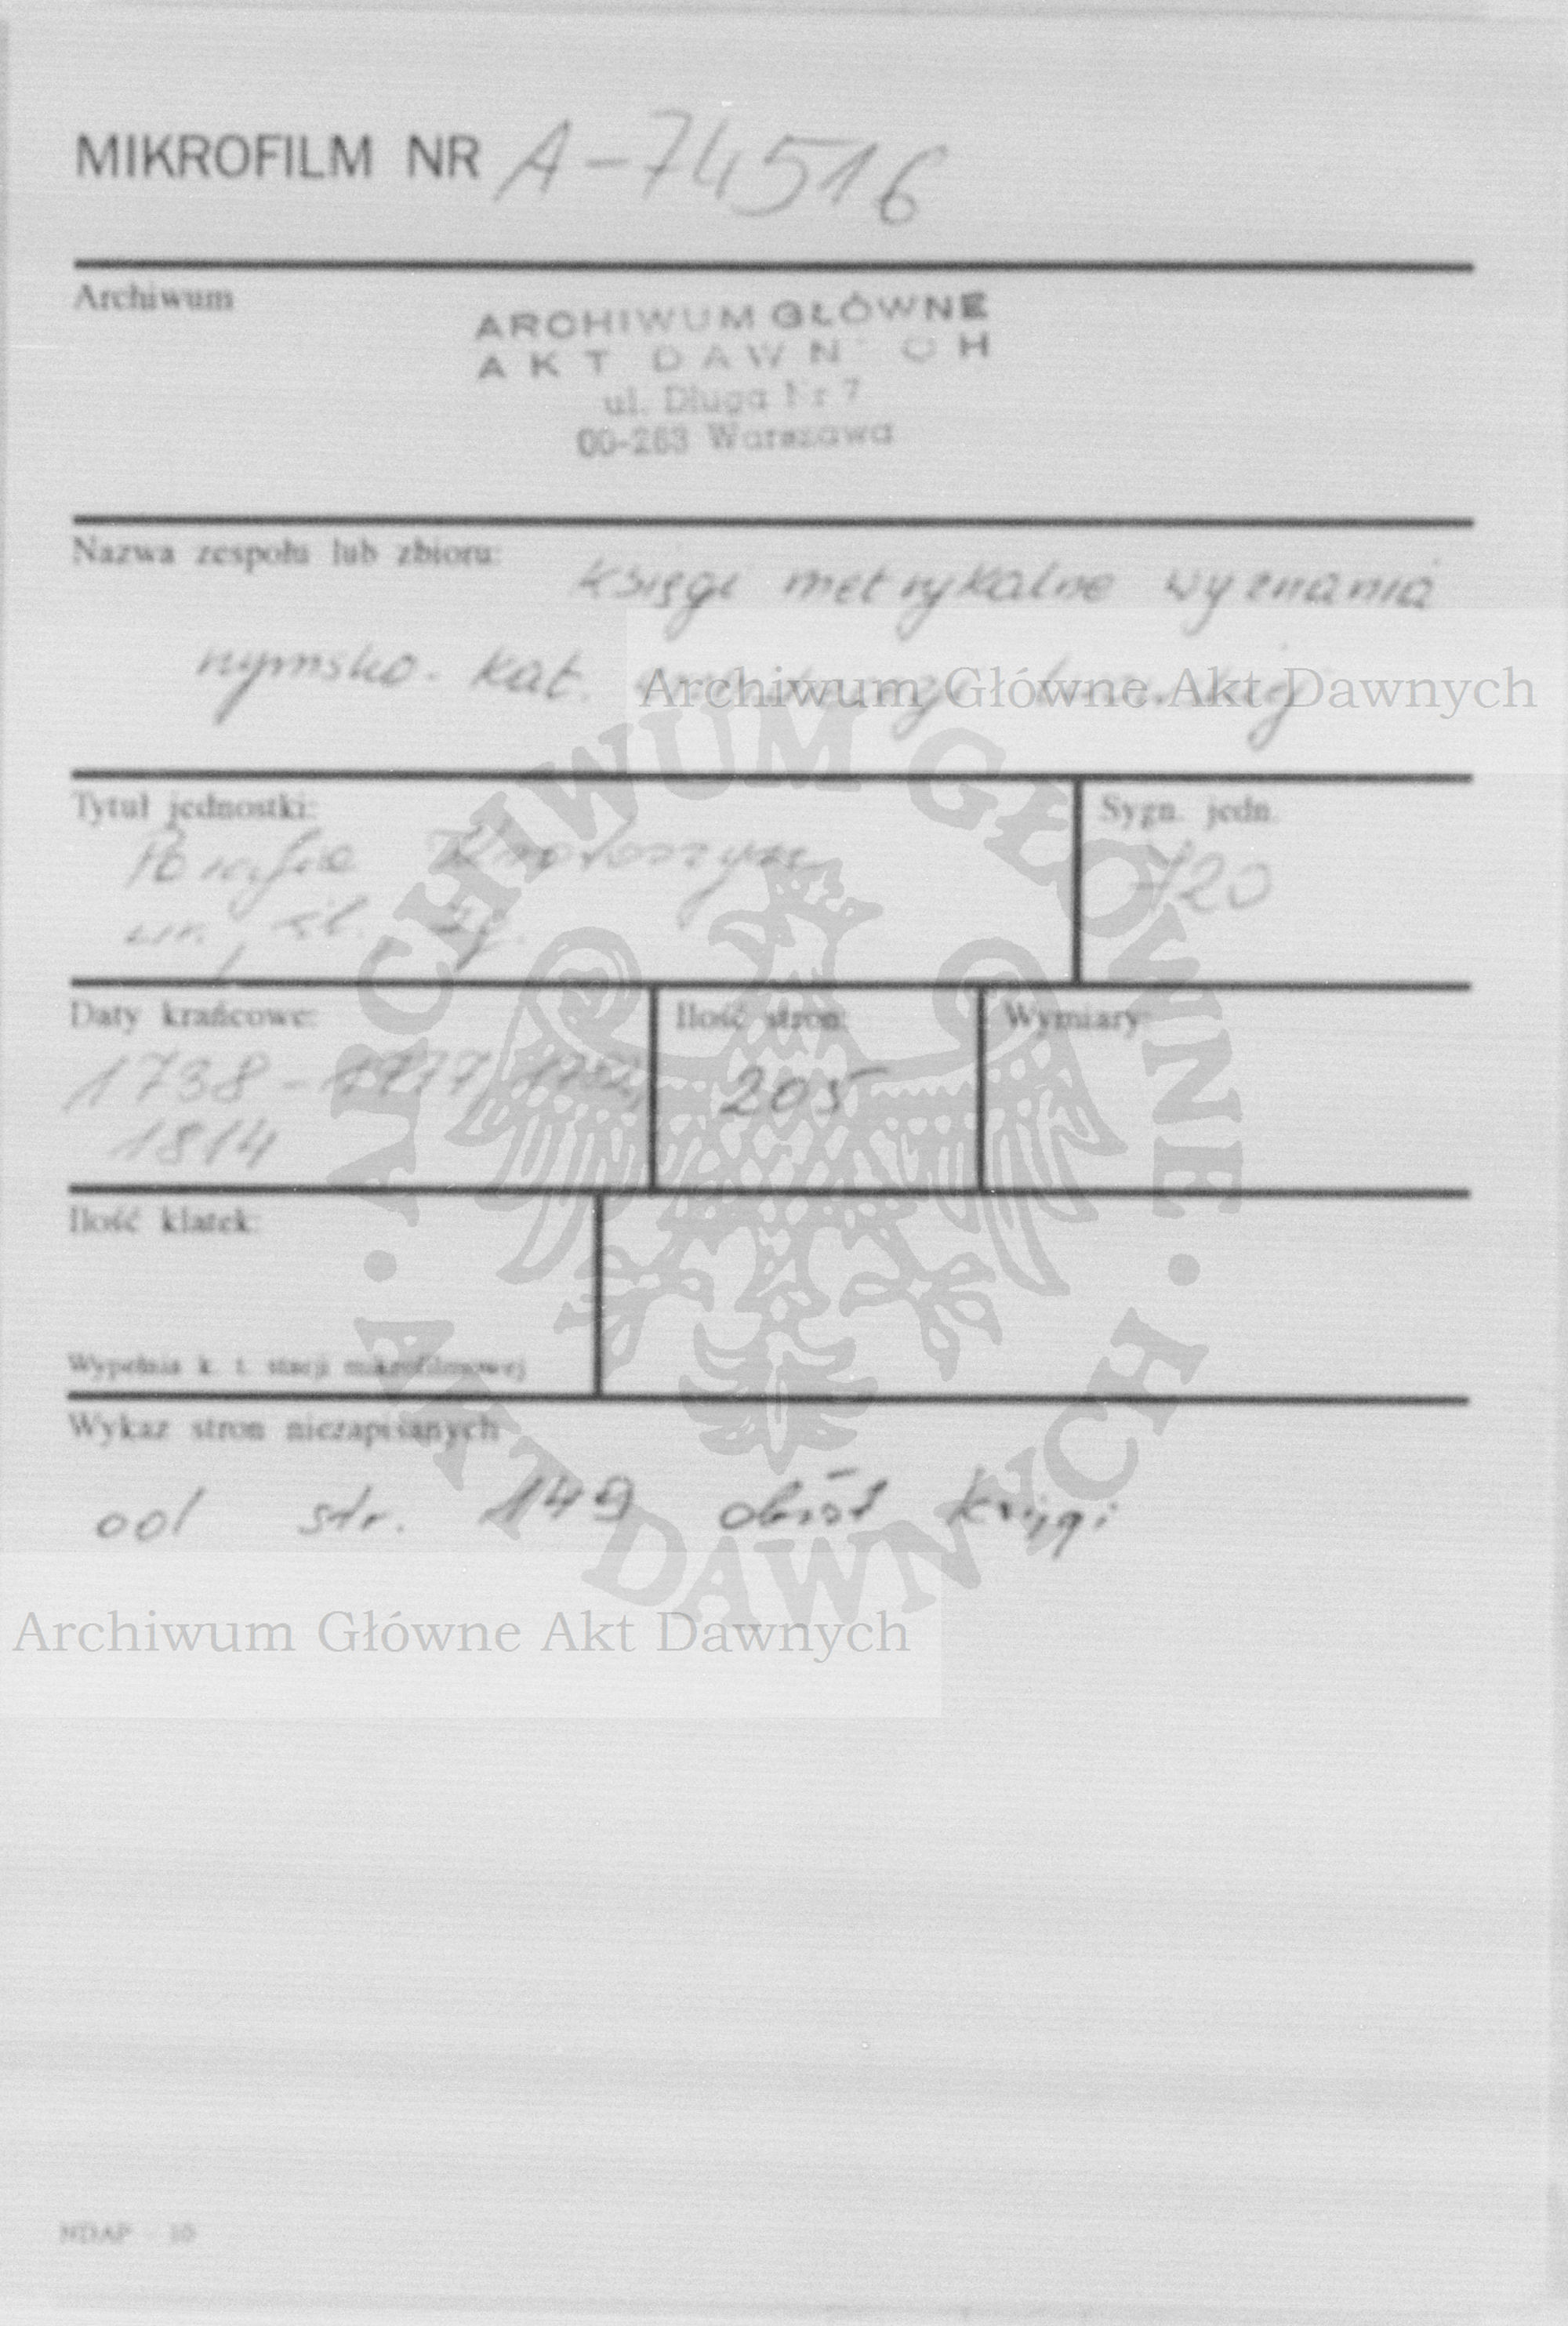 MIKROFILM NR A-74516
Archiwum
ARCHIWUM GŁÓWNE
AKT DAWNYCH
ul. Długa Nr 7
00-263 Warszawa
Nazwa zespołu lub zbioru: Księgi metrykalne wyznania
rzymsko-kat.
Archiwum Główne Akt Dawnych
Tytuł jednostki:
Parafia
ur. śl. zg.
Sygn. jedn.
720
Daty krańcowe:
1738 - 1777,
1814
Ilość stron:
205
Wymiary:
Ilość klatek:
Wypełnia k. t. stacji mikrofilmowej
Wykaz stron niezapisanych
od str. 149 obrót Księgi
Archiwum Główne Akt Dawnych
ARCHIWUM GŁÓWNE
AKT DAWNYCH
NDAP - 10